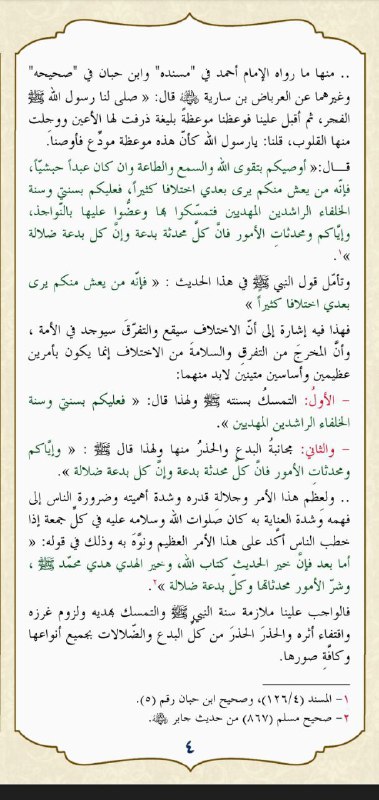 .. منها ما رواه الإمام أحمد في "مسنده" وابن حبان في "صحيحه"
وغيرهما عن العرباض بن سارية ﵁ قال: « صلى لنا رسول الله ﷺ
الفجر، ثم أقبل علينا فوعظنا موعظةً بليغة ذرفت لها الأعين ووجلت
منها القلوب، قلنا: يارسول الله كأنّ هذه موعظة مودِّع فأوصنا.
قـــال:« أوصيكم بتقوى الله والسمع والطاعة وإن كان عبداً حبشيّاً،
فإنّه من يعش منكم يرى بعدي اختلافا كثيراً، فعليكم بسنتي وسنة
الخلفاء الراشدين المهديين فتمسّكوا بها وعضُّوا عليها بالنّواجذ،
وإيّاكم ومحدثاتِ الأمور فانَّ كلَّ محدثة بدعة وإنَّ كل بدعة ضلالة
»١.
وتأمّل قول النبي ﷺ في هذا الحديث : « فإنّه من يعش منكم يرى
بعدي اختلافا كثيراً »
فهذا فيه إشارة إلى أنّ الاختلاف سيقع والتفرّقَ سيوجد في الأمة ،
وأنَّ المخرجَ من التفرقِ والسلامةَ من الاختلاف إنما يكون بأمرين
عظيمين وأساسين متينين لابد منهما:
- الأولُ: التمسكُ بسنته ﷺ ولهذا قال: « فعليكم بسنتي وسنة
الخلفاء الراشدين المهديين ».
- والثاني: مجانبةُ البدعِ والحذرُ منها ولهذا قال ﷺ : « وإيّاكم
ومحدثاتِ الأمور فانَّ كلَّ محدثة بدعة وإنَّ كل بدعة ضلالة ».
.. ولعِظم هذا الأمر وجلالة قدره وشدة أهميته وضرورة الناس إلى
فهمه وشدة العناية به كان صَلوات الله وسلامه عليه في كلِّ جمعة إذا
خطب الناس أكَّد على هذا الأمر العظيم ونوَّهَ به وذلك في قوله: «
أما بعد فإنَّ خير الحديث كتاب الله، وخير الهدي هدي محمّد ﷺ ،
وشرّ الأمور محدثاتها وكلّ بدعة ضلالة »٢.
فالواجب علينا ملازمة سنة النبي ﷺ والتمسك بهديه ولزوم غرزه
واقتفاء أثره والحذرَ الحذرَ من كلِّ البدع والضّلالات بجميع أنواعها
وكافّةِ صورها.
١- المسند (١٢٦/٤)، وصحيح ابن حبان رقم (٥).
٢- صحيح مسلم (٨٦٧) من حديث جابر ﵁.
٤